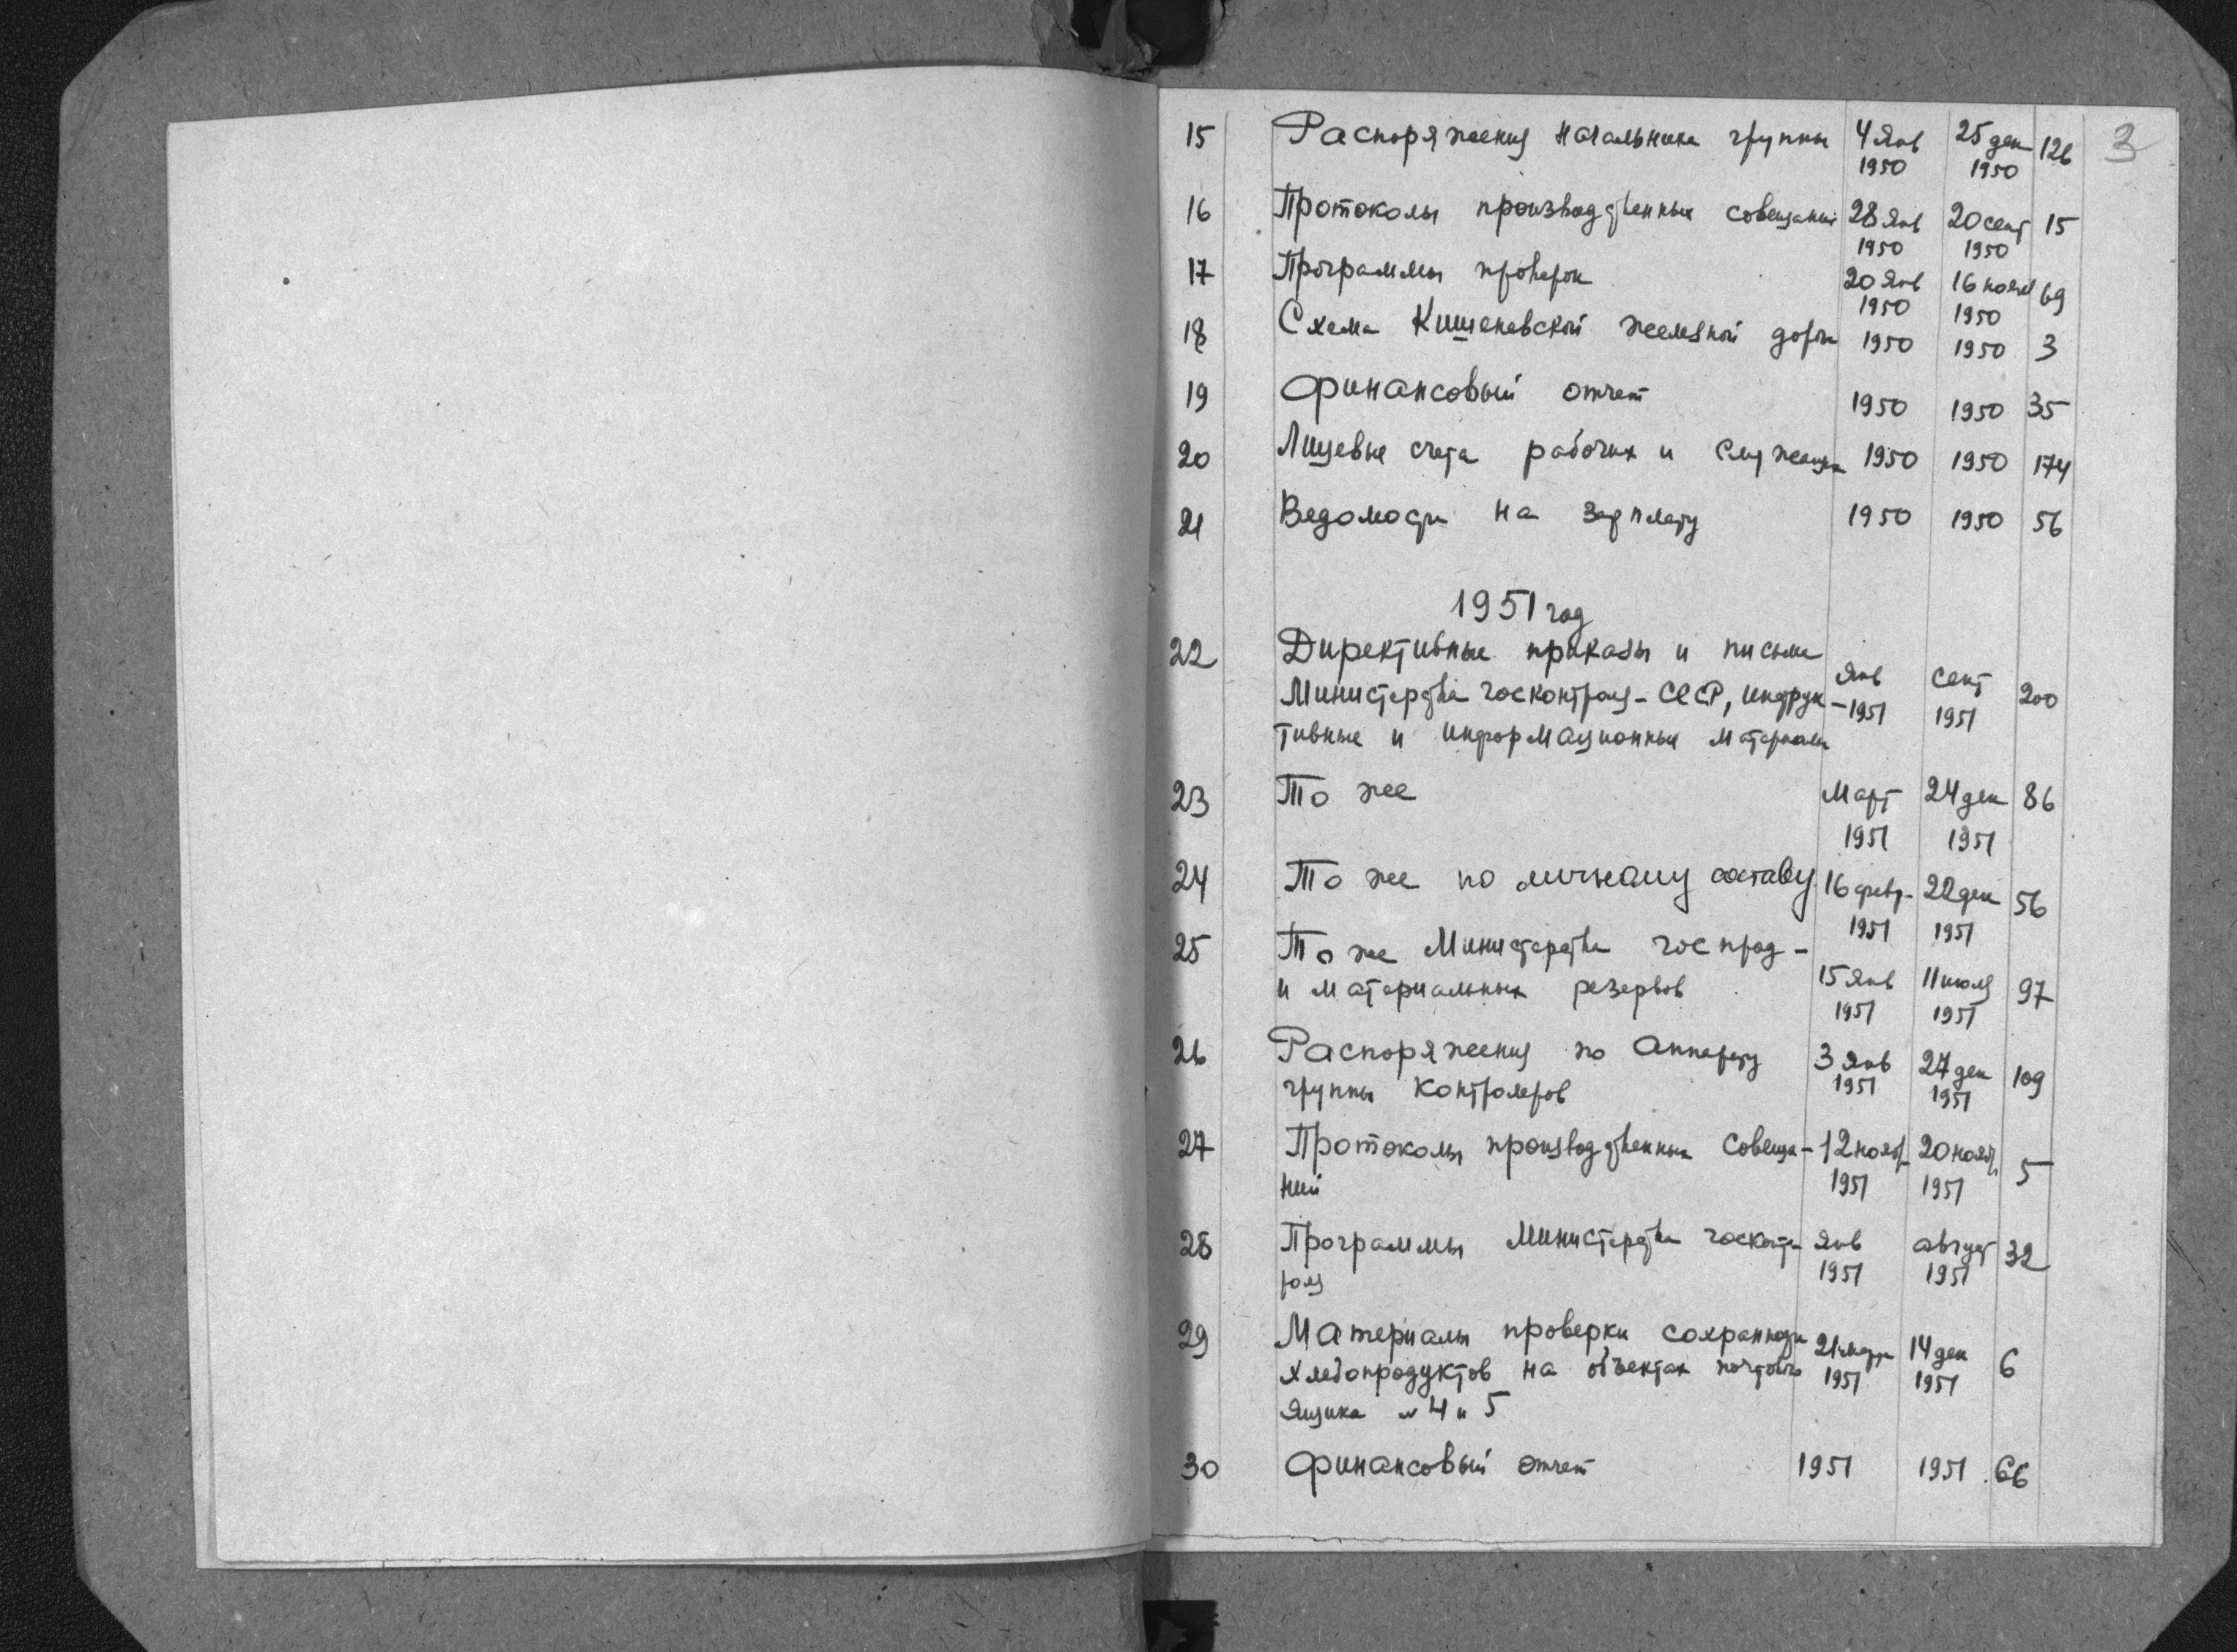 3
15 Распоряжения начальника группы 4 янв 1950 25 дек 1950 126
16 Протоколы производственных совещаний 28 янв 1950 20 сент 1950 15
17 Программы проверок 20 янв 1950 16 нояб 1950 69
18 Схема Кишеневской железной дороги 1950 1950 3
19 Финансовый отчет 1950 1950 35
20 Лицевые счета рабочих и служащих 1950 1950 174
21 Ведомости на зарплату 1950 1950 56
1951 год
22 Директивные приказы и письма
Министерства госконтроля СССР, инструк- янв 1951 сент 1951 200
тивные и информационные материалы
23 То же март 1951 24 дек 1951 86
24 То же по личному составу 16 февр. 1951 22 дек 1951 56
25 То же Министерства госпрод-
и материальных резервов 15 янв 1951 11 июля 1951 97
26 Распоряжения по аппарату 3 янв 1951 27 дек 1951 109
группы контролеров
27 Протоколы производственных совеща- 12 нояб 1951 20 нояб. 1951 5
ний
28 Программы Министерства госконт- янв 1951 август 1951 32
роля
29 Материалы проверки сохранности
хлебопродуктов на объектах почтового 21 марта 1951 14 дек 1951 6
ящика № 4 и 5
30 Финансовый отчет 1951 1951 66